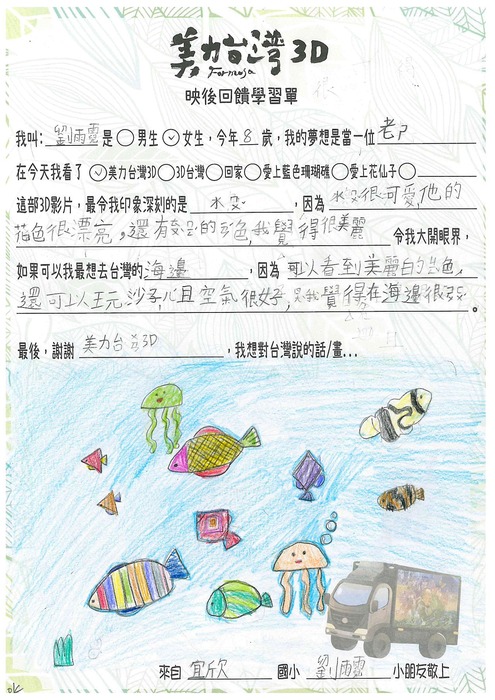 美力台灣3D
Formosa
映後回饋學習單
我叫:劉雨霏是○男生✓女生,今年8歲,我的夢想是當一位老ㄕ
在今天我看了✓美力台灣3D○3D台灣○回家○愛上藍色珊瑚礁○愛上花仙子○
這部3D影片,最令我印象深刻的是水,因為水很可愛,他的
花色很漂亮,還有的色,我覺得很美麗令我大開眼界,
如果可以我最想去台灣的海邊,因為可以看到美麗白的色,
還可以玩沙子,且空氣很好,我覺得在海邊很
最後,謝謝美力台灣3D,我想對台灣說的話/畫...
來自宜欣國小劉雨霏小朋友敬上
ok